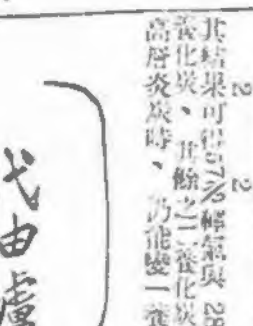 2 2
其結果可得57%輕氣與 28
養化炭、其餘之二養化炭
高層炎炭時、仍能變一養
代由處